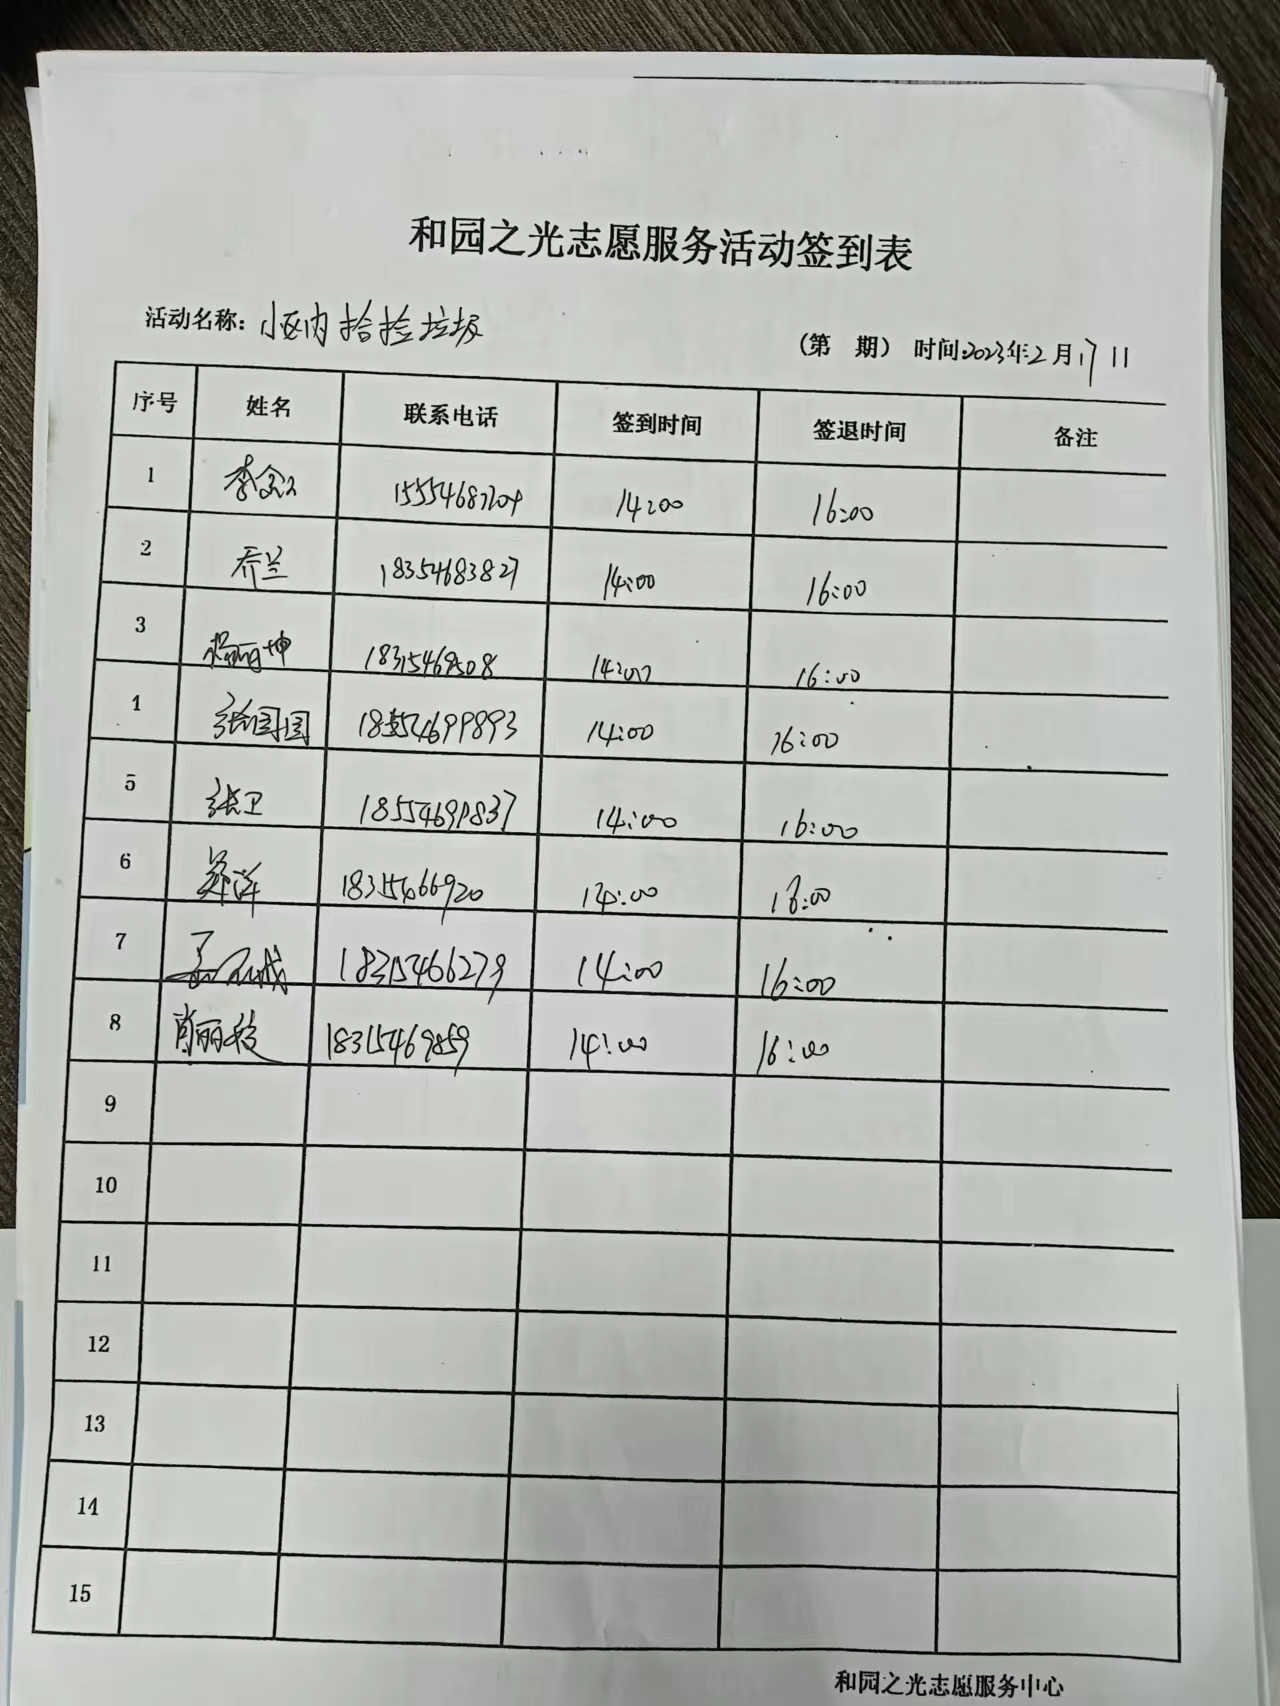 和园之光志愿服务活动签到表
活动名称: 小区内捡拾垃圾
(第 期) 时间:2023年2月17日
序号 姓名 联系电话 签到时间 签退时间 备注
1 李念 14:00 16:00
2 乔兰 18354683827 14:00 16:00
3 杨丽坤 14:00 16:00
4 张园园 18554699893 14:00 16:00
5 张卫 18554699837 14:00 16:00
6 郑萍 18315466920 14:00 16:00
7 18315466279 14:00 16:00
8 肖丽 18315469859 14:00 16:00
9
10
11
12
13
14
15
和园之光志愿服务中心